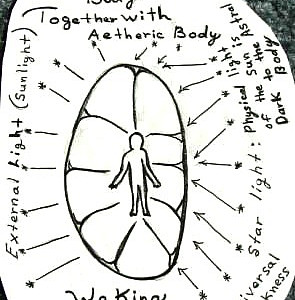 Body
Together with
Aetheric Body
External Light (Sunlight)
Star light: Physical light
of the Sun is
to the Astral
Dark Body
Waking